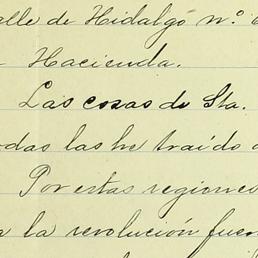 alle de Hidalgó n.º
Hacienda.
Las cosas de Sta.
odas las he traído
Por estas regiones
a la revolución fuer